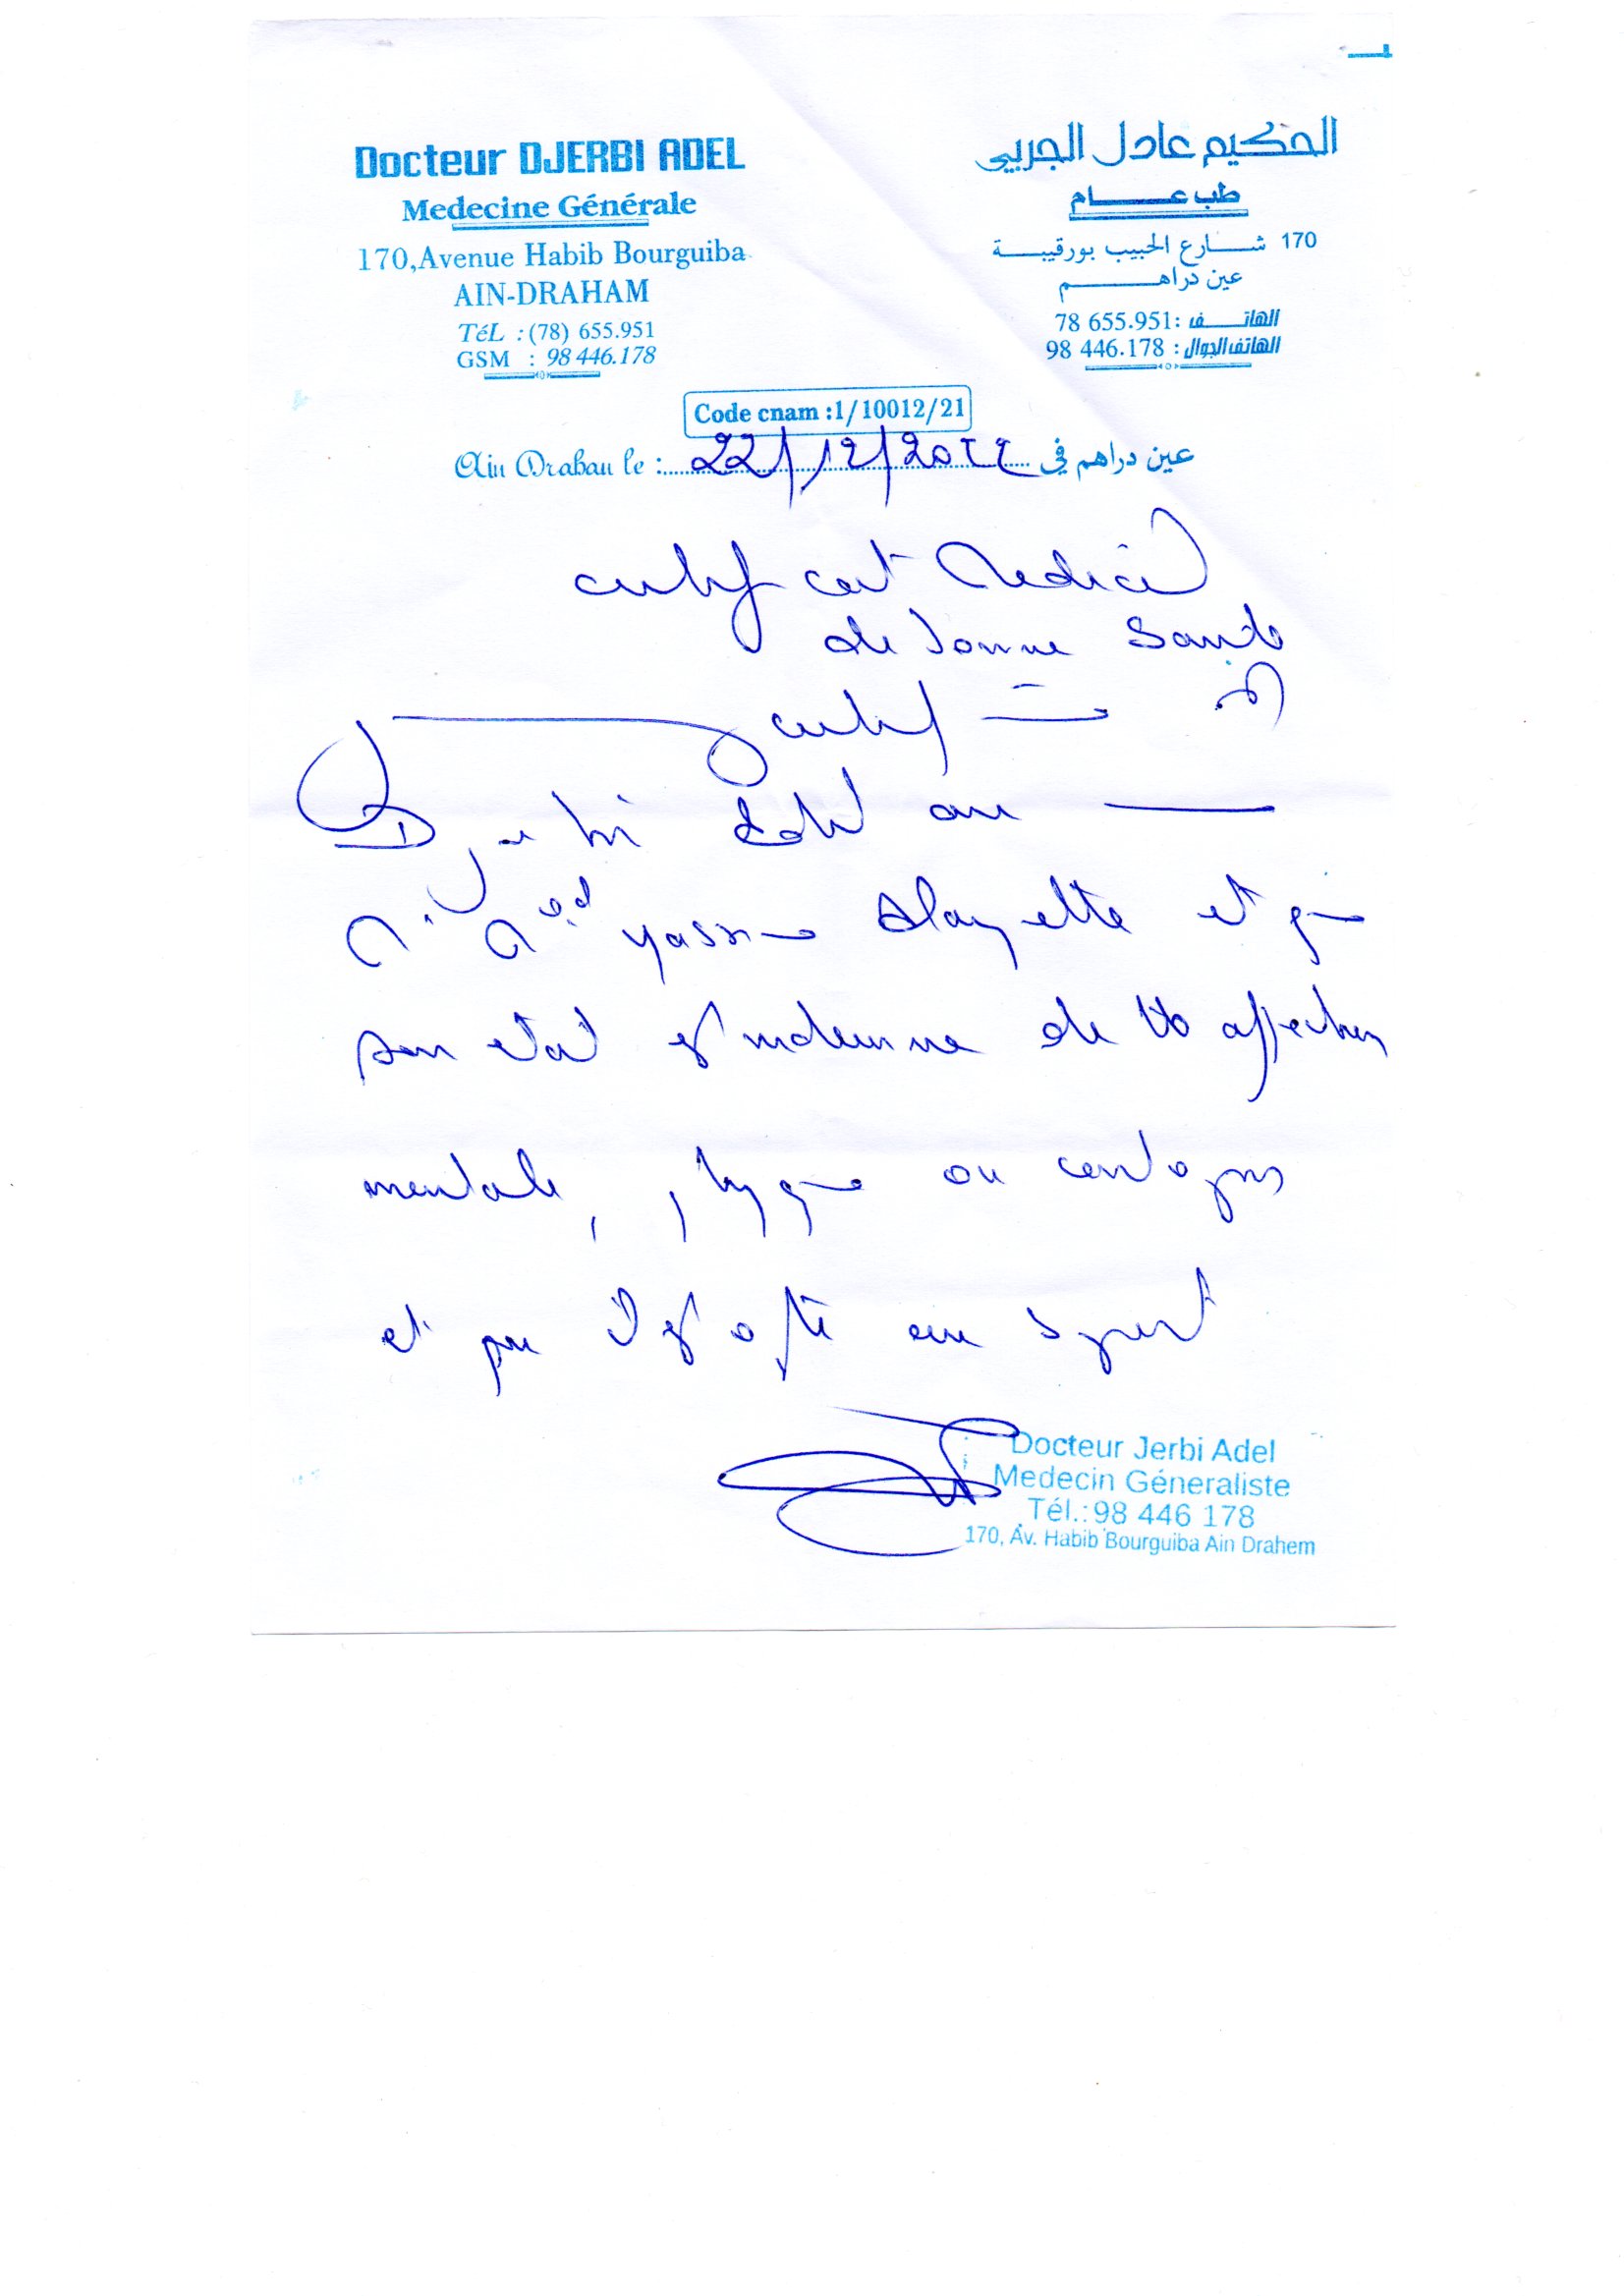 Docteur DJERBI ADEL
Medecine Générale
170,Avenue Habib Bourguiba
AIN-DRAHAM
TéL : (78) 655.951
GSM : 98 446.178
الحكيم عادل الجربي
طب عـــــام
170 شـــارع الحبيب بورقيبـــة
عين دراهـــــم
الهاتـــف :78 655.951
الهاتف الجوال : 98 446.178
Code cnam :1/10012/21
Ain Drahau le : 22/12/20 عين دراهم في
certificat Medical
de bonne Sante
Djerbi Adel
yassine et que
son etat est indemne de tte affection
mentale, physique ou contagieuse
et que il est apte au sport
Docteur Jerbi Adel
Medecin Géneraliste
Tél.:98 446 178
170, Av. Habib Bourguiba Ain Drahem